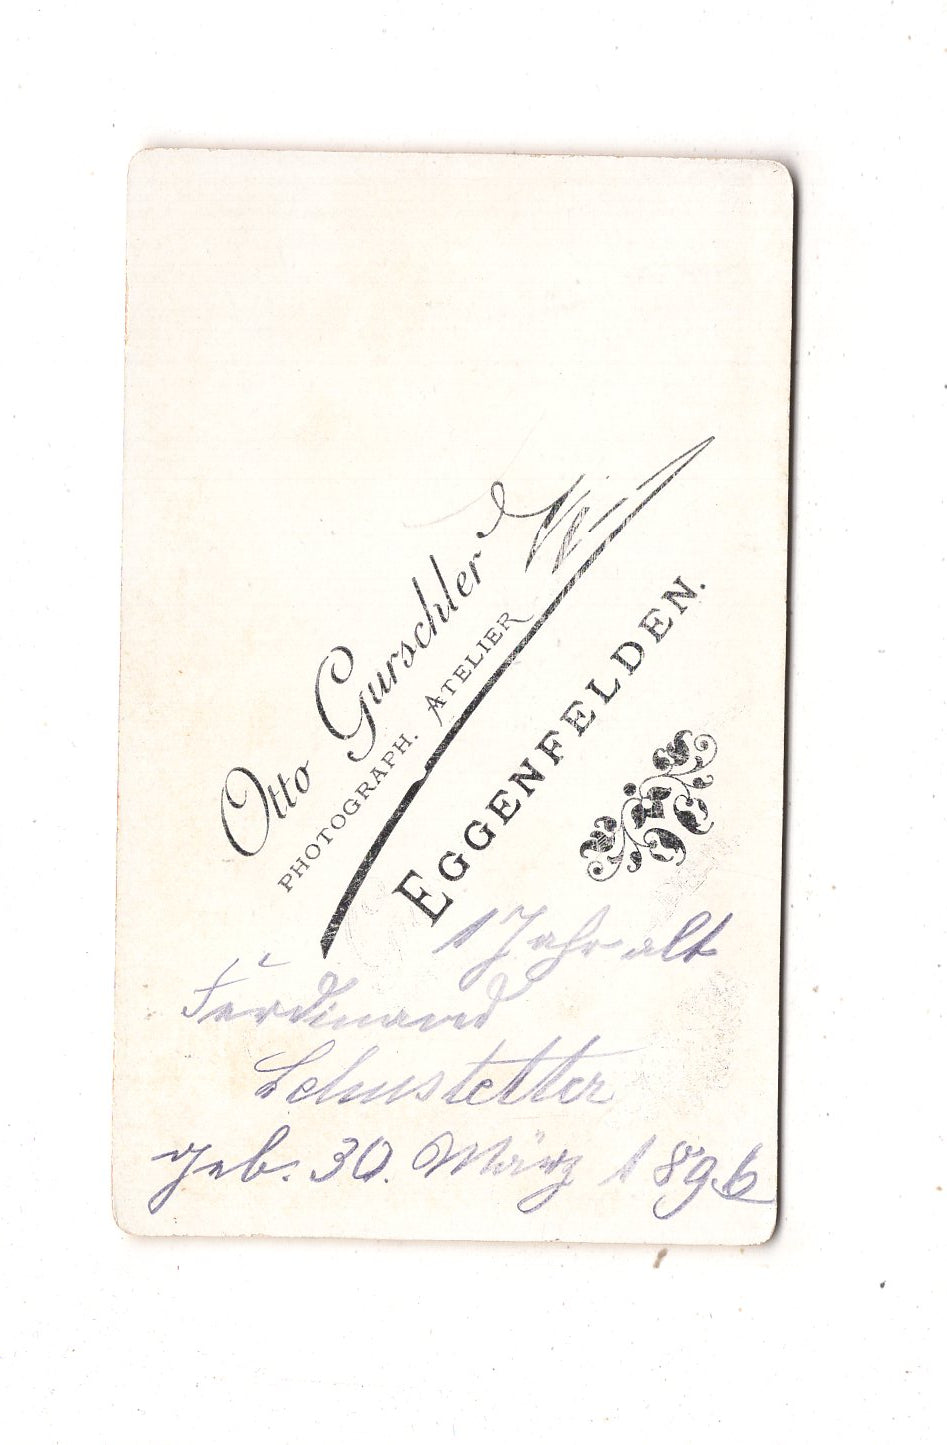 Otto Gurschler
PHOTOGRAPH. ATELIER
EGGENFELDEN.
1 Jahr alt
Ferdinand
Lehnstetter
geb. 30. März 1896